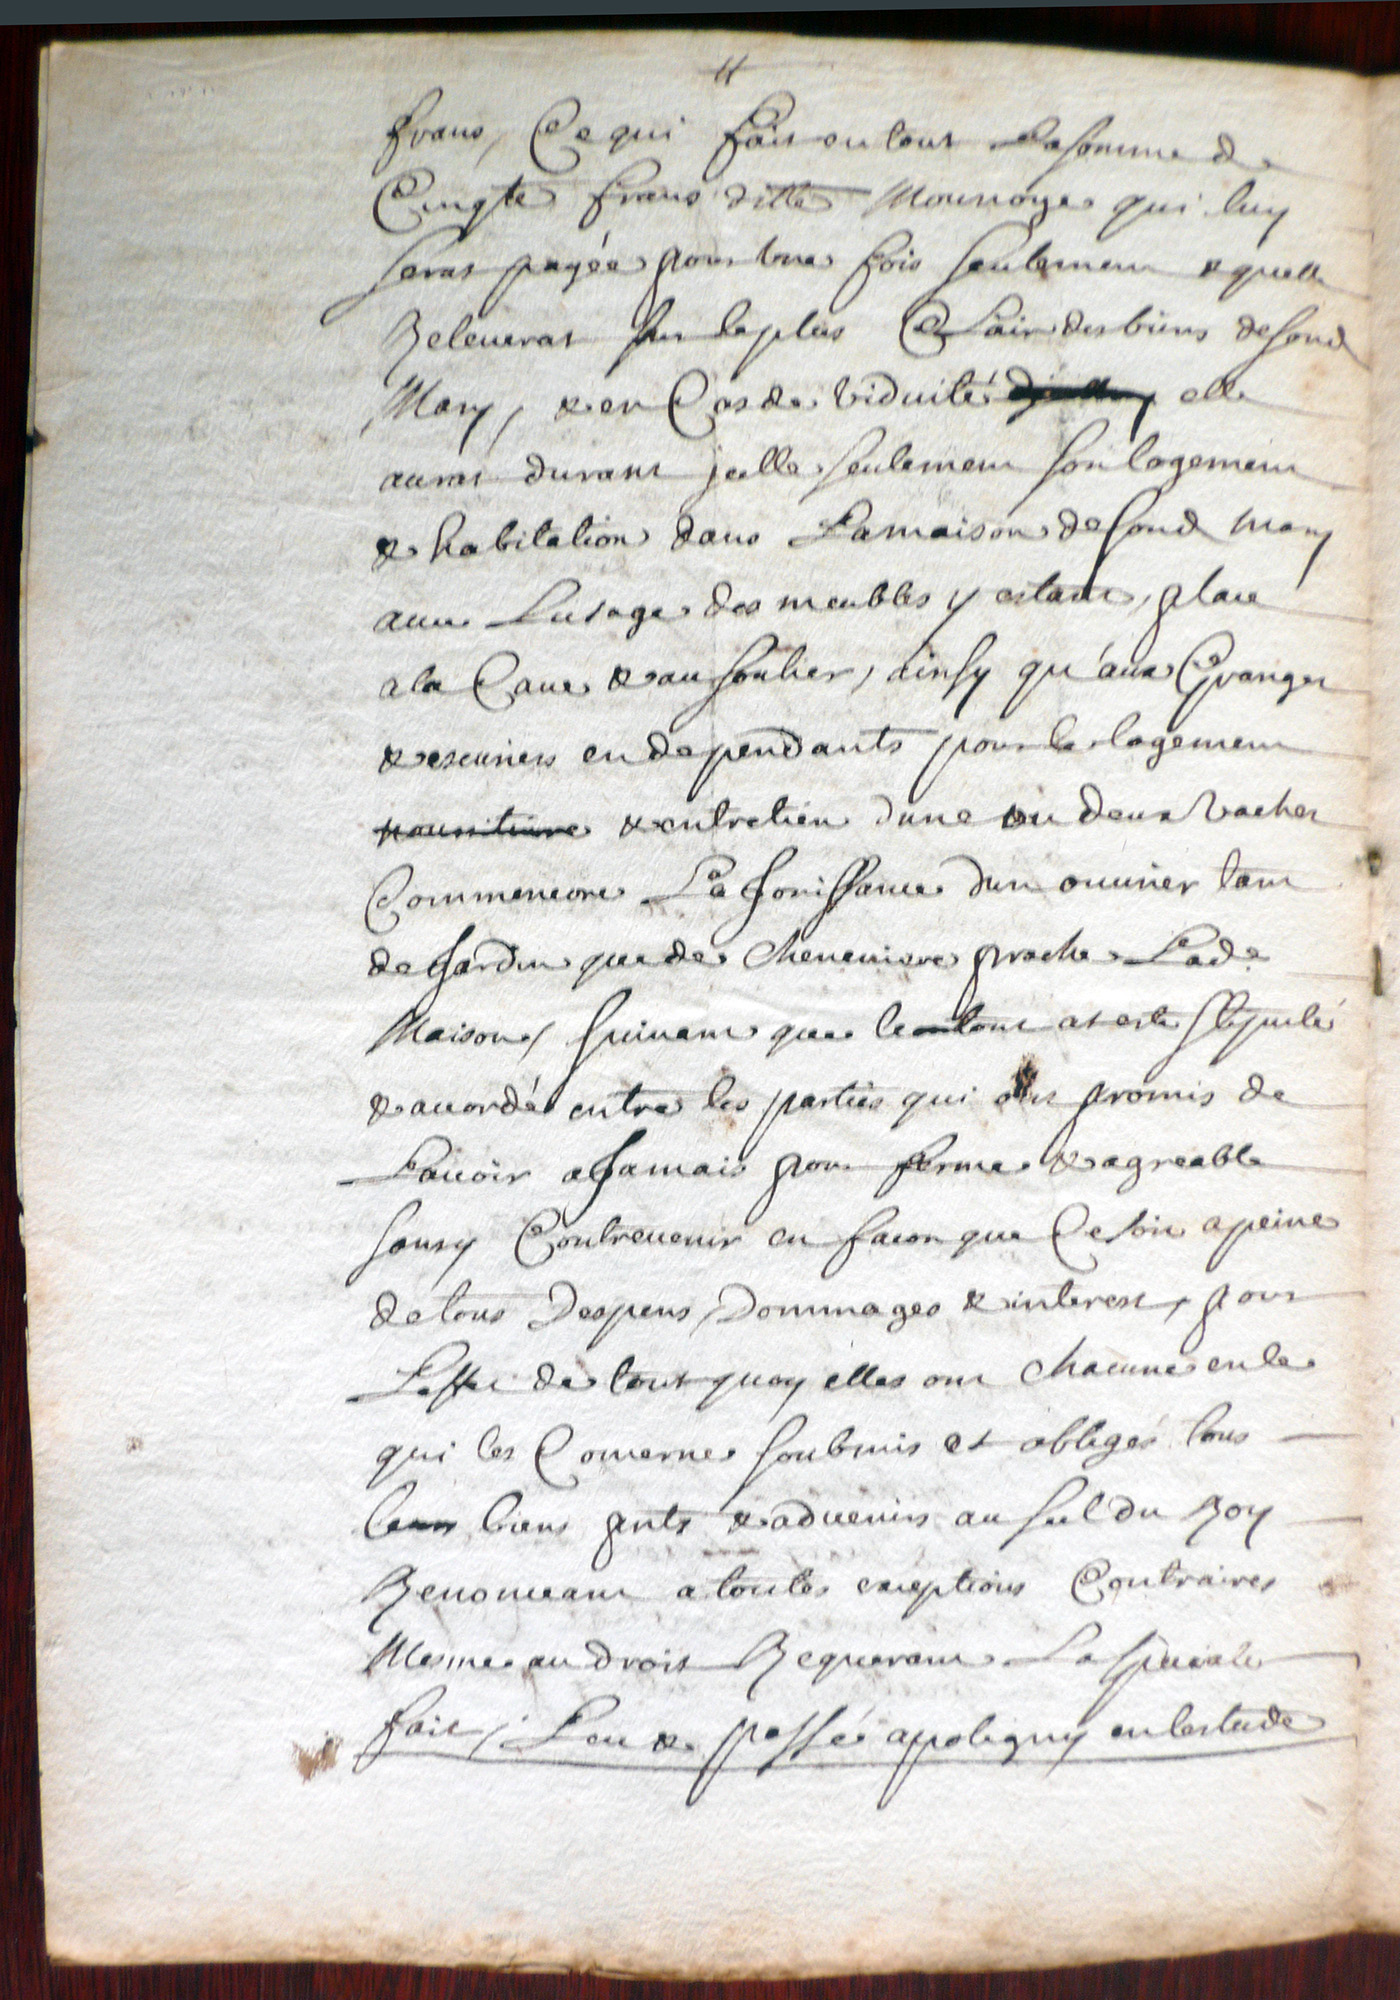 frans, Ce qui fait en tout La somme de
Cinqte frans ditte Monnoye qui luy
seras payée pour une fois seulement & quelle
Releveras sur le plus Clair des biens de sond
Mary, & en Cas de viduité elle
auras durant jcelle seulement son logement
& habitation dans La maison de sond mary
avec Lusage des meubles y estant, place
a la Cave & au solier, ainsy qu'aux Granges
& escuries en dependants pour le logement
nourriture & entretien dune ou deux vaches
Comm'encore La Jouissance dun ouvrier tant
de Jardin que de Cheneviere proche Lade
Maison, suivant que le tout at esté stipulé
& accordé entre les parties qui ont promis de
Lavoir a Jamais pour ferme & agreable
sans y Contrevenir en facon que Ce soit a peine
de tous Despens, Dommages & interest, pour
Leffect de tout quoy elles ont chacune en ce
qui les Concerne soubmis et obligés tous
leurs biens pnts & advenirs au scel du Roy
Renonceant a toutes exceptions Contraires
Mesme au droit Requerant La speciale
fait, Leu & passé a poligny en lestude